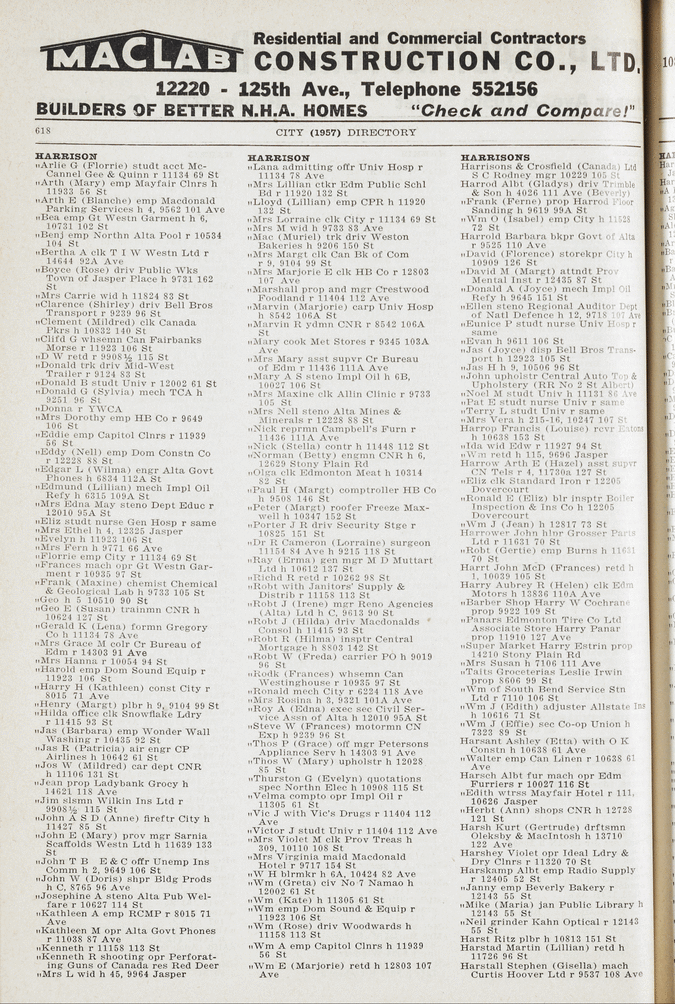 MACLAB
Residential and Commercial Contractors
CONSTRUCTION CO., LTD.
12220 - 125th Ave., Telephone 552156
BUILDERS OF BETTER N.H.A. HOMES "Check and Compare!"
618
CITY (1957) DIRECTORY
HARRISON
„Arlie G (Florrie) studt acct Mc-
Cannel Gee & Quinn r 11134 69 St
„Arth (Mary) emp Mayfair Clnrs h
11933 56 St
„Arth E (Blanche) emp Macdonald
Parking Services h 4, 9562 101 Ave
„Bea emp Gt Westn Garment h 6,
10731 102 St
„Benj emp Northn Alta Pool r 10534
104 St
„Bertha A clk T I W Westn Ltd r
14644 92A Ave
„Boyce (Rose) driv Public Wks
Town of Jasper Place h 9731 162
St
„Mrs Carrie wid h 11824 83 St
„Clarence (Shirley) driv Bell Bros
Transport r 9239 96 St
„Clement (Mildred) clk Canada
Pkrs h 10832 140 St
„Clifd G whsemn Can Fairbanks
Morse r 11923 106 St
„D W retd r 9908½ 115 St
„Donald trk driv Mid-West
Trailer r 9124 83 St
„Donald B studt Univ r 12002 61 St
„Donald G (Sylvia) mech TCA h
9251 96 St
„Donna r YWCA
„Mrs Dorothy emp HB Co r 9649
106 St
„Eddie emp Capitol Clnrs r 11939
56 St
„Eddy (Nell) emp Dom Constn Co
r 12228 88 St
„Edgar L (Wilma) engr Alta Govt
Phones h 6834 112A St
„Edmund (Lillian) mech Impl Oil
Refy h 6315 109A St
„Mrs Edna May steno Dept Educ r
12010 95A St
„Eliz studt nurse Gen Hosp r same
„Mrs Ethel h 4, 12325 Jasper
„Evelyn h 11923 106 St
„Mrs Fern h 9771 66 Ave
„Florrie emp City r 11134 69 St
„Frances mach opr Gt Westn Gar-
ment r 10935 97 St
„Frank (Maxine) chemist Chemical
& Geological Lab h 9733 105 St
„Geo h 5 10510 90 St
„Geo E (Susan) trainmn CNR h
10624 127 St
„Gerald K (Lena) formn Gregory
Co h 11134 78 Ave
„Mrs Grace M colr Cr Bureau of
Edm r 14303 91 Ave
„Mrs Hanna r 10054 94 St
„Harold emp Dom Sound Equip r
11923 106 St
„Harry H (Kathleen) const City r
8015 71 Ave
„Henry (Margt) plbr h 9, 9104 99 St
„Hilda office clk Snowflake Ldry
r 11415 93 St
„Jas (Barbara) emp Wonder Wall
Washing r 10435 92 St
„Jas R (Patricia) air engr CP
Airlines h 10642 61 St
„Jos W (Mildred) car dept CNR
h 11106 131 St
„Jean prop Ladybank Grocy h
14621 118 Ave
„Jim slsmn Wilkin Ins Ltd r
9908½ 115 St
„John A S D (Anne) fireftr City h
11427 85 St
„John E (Mary) prov mgr Sarnia
Scaffolds Westn Ltd h 11639 133
St
„John T B E & C offr Unemp Ins
Comm h 2, 9649 106 St
„John W (Doris) shpr Bldg Prods
h C, 8765 96 Ave
„Josephine A steno Alta Pub Wel-
fare r 10627 114 St
„Kathleen A emp RCMP r 8015 71
Ave
„Kathleen M opr Alta Govt Phones
r 11038 87 Ave
„Kenneth r 11158 113 St
„Kenneth R shooting opr Perforat-
ing Guns of Canada res Red Deer
„Mrs L wid h 45, 9964 Jasper
HARRISON
„Lana admitting offr Univ Hosp r
11134 78 Ave
„Mrs Lillian ctkr Edm Public Schl
Bd r 11920 132 St
„Lloyd (Lillian) emp CPR h 11920
132 St
„Mrs Lorraine clk City r 11134 69 St
„Mrs M wid h 9733 83 Ave
„Mac (Muriel) trk driv Weston
Bakeries h 9206 150 St
„Mrs Margt clk Can Bk of Com
r 9, 9104 99 St
„Mrs Marjorie E clk HB Co r 12803
107 Ave
„Marshall prop and mgr Crestwood
Foodland r 11404 112 Ave
„Marvin (Marjorie) carp Univ Hosp
h 8542 106A St
„Marvin R ydmn CNR r 8542 106A
St
„Mary cook Met Stores r 9345 103A
Ave
„Mrs Mary asst supvr Cr Bureau
of Edm r 11436 111A Ave
„Mary A S steno Impl Oil h 6B,
10027 106 St
„Mrs Maxine clk Allin Clinic r 9733
105 St
„Mrs Nell steno Alta Mines &
Minerals r 12228 88 St
„Nick reprmn Campbell's Furn r
11436 111A Ave
„Nick (Stella) contr h 11448 112 St
„Norman (Betty) engmn CNR h 6,
12629 Stony Plain Rd
„Olga clk Edmonton Meat h 10314
82 St
„Paul H (Margt) comptroller HB Co
h 9508 146 St
„Peter (Margt) roofer Freeze Max-
well h 10347 152 St
„Porter J R driv Security Stge r
10825 151 St
„Dr R Cameron (Lorraine) surgeon
11154 84 Ave h 9215 118 St
„Ray (Erma) gen mgr M D Muttart
Ltd h 10612 137 St
„Richd R retd r 10262 98 St
„Robt with Janitors' Supply &
Distrib r 11158 113 St
„Robt J (Irene) mgr Reno Agencies
(Alta) Ltd h C, 9613 90 St
„Robt J (Hilda) driv Macdonalds
Consol h 11415 93 St
„Robt R (Hilma) insptr Central
Mortgage h 8803 142 St
„Robt W (Freda) carrier PO h 9019
96 St
„Rodk (Frances) whsemn Can
Westinghouse r 10935 97 St
„Ronald mech City r 6224 118 Ave
„Mrs Rosina h 3, 9321 101A Ave
„Roy A (Edna) exec sec Civil Ser-
vice Assn of Alta h 12010 95A St
„Steve W (Frances) motormn CN
Exp h 9239 96 St
„Thos P (Grace) off mgr Petersons
Appliance Serv h 14303 91 Ave
„Thos W (Mary) upholstr h 12028
85 St
„Thurston G (Evelyn) quotations
spec Northn Elec h 10908 115 St
„Velma compto opr Impl Oil r
11305 61 St
„Vic J with Vic's Drugs r 11404 112
Ave
„Victor J studt Univ r 11404 112 Ave
„Mrs Violet M clk Prov Treas h
309, 10110 108 St
„Mrs Virginia maid Macdonald
Hotel r 9717 154 St
„W H blrmkr h 6A, 10424 82 Ave
„Wm (Greta) civ No 7 Namao h
12002 61 St
„Wm (Kate) h 11305 61 St
„Wm emp Dom Sound & Equip r
11923 106 St
„Wm (Rose) driv Woodwards h
11158 113 St
„Wm A emp Capitol Clnrs h 11939
56 St
„Wm E (Marjorie) retd h 12803 107
Ave
HARRISONS
Harrisons & Crosfield (Canada) Ltd
S C Rodney mgr 10229 105 St
Harrod Albt (Gladys) driv Trimble
& Son h 4026 111 Ave (Beverly)
„Frank (Ferne) prop Harrod Floor
Sanding h 9619 99A St
„Wm O (Isabel) emp City h 11528
72 St
Harrold Barbara bkpr Govt of Alta
r 9525 110 Ave
„David (Florence) storekpr City h
10909 126 St
„David M (Margt) attndt Prov
Mental Inst r 12435 87 St
„Donald A (Joyce) mech Impl Oil
Refy h 9645 151 St
„Ellen steno Regional Auditor Dept
of Natl Defence h 12, 9718 107 Ave
„Eunice P studt nurse Univ Hosp r
same
„Evan h 9611 106 St
„Jas (Joyce) disp Bell Bros Trans-
port h 12923 105 St
„Jas H h 9, 10506 96 St
„John upholstr Central Auto Top &
Upholstery (RR No 2 St Albert)
„Noel M studt Univ h 11131 86 Ave
„Pat E studt nurse Univ r same
„Terry L studt Univ r same
„Mrs Vera h 215-16, 10247 107 St
Harrop Francis (Louise) rcvr Eatons
h 10638 153 St
„Ida wid Edw r 11927 94 St
„Wm retd h 115, 9696 Jasper
Harrow Arth E (Hazel) asst supvr
CN Tels r 4, 11730a 127 St
„Eliz clk Standard Iron r 12205
Dovercourt
„Ronald E (Eliz) blr insptr Boiler
Inspection & Ins Co h 12205
Dovercourt
„Wm J (Jean) h 12817 73 St
Harrower John hlpr Grosser Paris
Ltd r 11631 70 St
„Robt (Gertie) emp Burns h 11631
70 St
Harrt John McD (Frances) retd h
1, 10039 105 St
Harry Aubrey R (Helen) clk Edm
Motors h 13836 110A Ave
„Barber Shop Harry W Cochrane
prop 9922 109 St
„Panars Edmonton Tire Co Ltd
Associate Store Harry Panar
prop 11910 127 Ave
„Super Market Harry Estrin prop
14210 Stony Plain Rd
„Mrs Susan h 7106 111 Ave
„Taits Groceterias Leslie Irwin
prop 8606 99 St
„Wm of South Bend Service Stn
Ltd r 7110 106 St
„Wm J (Edith) adjuster Allstate Ins
h 10616 71 St
„Wm J (Effie) sec Co-op Union h
7323 89 St
Harsant Ashley (Etta) with O K
Constn h 10638 61 Av
„Walter emp Can Linen r 10638 61
Ave
Harsch Albt fur mach opr Edm
Furriers r 10027 116 St
„Edith wtrss Mayfair Hotel r 111,
10626 Jasper
„Herbt (Ann) shops CNR h 12728
121 St
Harsh Kurt (Gertrude) drftsmn
Oleksby & MacIntosh h 13710
122 Ave
Harshey Violet opr Ideal Ldry &
Dry Clnrs r 11320 70 St
Harskamp Albt emp Radio Supply
r 12405 52 St
„Janny emp Beverly Bakery r
12143 55 St
„Mike (Maria) jan Public Library h
12143 55 St
„Neil grinder Kahn Optical r 12143
55 St
Harst Ritz plbr h 10813 151 St
Harstad Martin (Lillian) retd h
11726 96 St
Harstall Stephen (Gisella) mach
Curtis Hoover Ltd r 9537 108 Ave